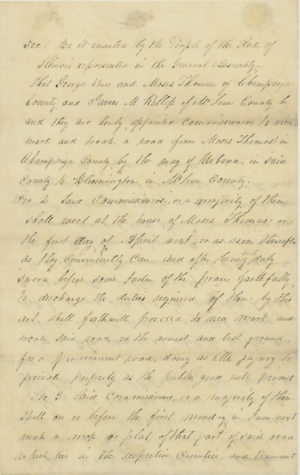 Sec 1 Be it enacted by the People of the State of
Illinois represented in the General Assembly
That George and Moses Thomas of Champaign
County and James M of McLean County be
and they are hereby appointed Commissioners to view
mark and locate a road from Moses Thomas' in
Champaign County by the way of Urbana, in said
County to Bloomington in McLean County.
Sec 2 Said Commissioners, or a majority of them
shall meet at the house of Moses Thomas on
the first day of April next, or as soon thereafter
as they conveniently can and after being duly
sworn before some Justice of the peace faithfully
to discharge the duties required of them by this
act shall faithfully proceed to view mark and
locate said road on the nearest and best ground
for a permanent road doing as little injury to
private property as the public good will permit
Sec 3 Said Commissioners, or a majority of them
shall on or before the first monday in June next
make a map or plat of that part of said road
which lies in the respective Counties and transmit